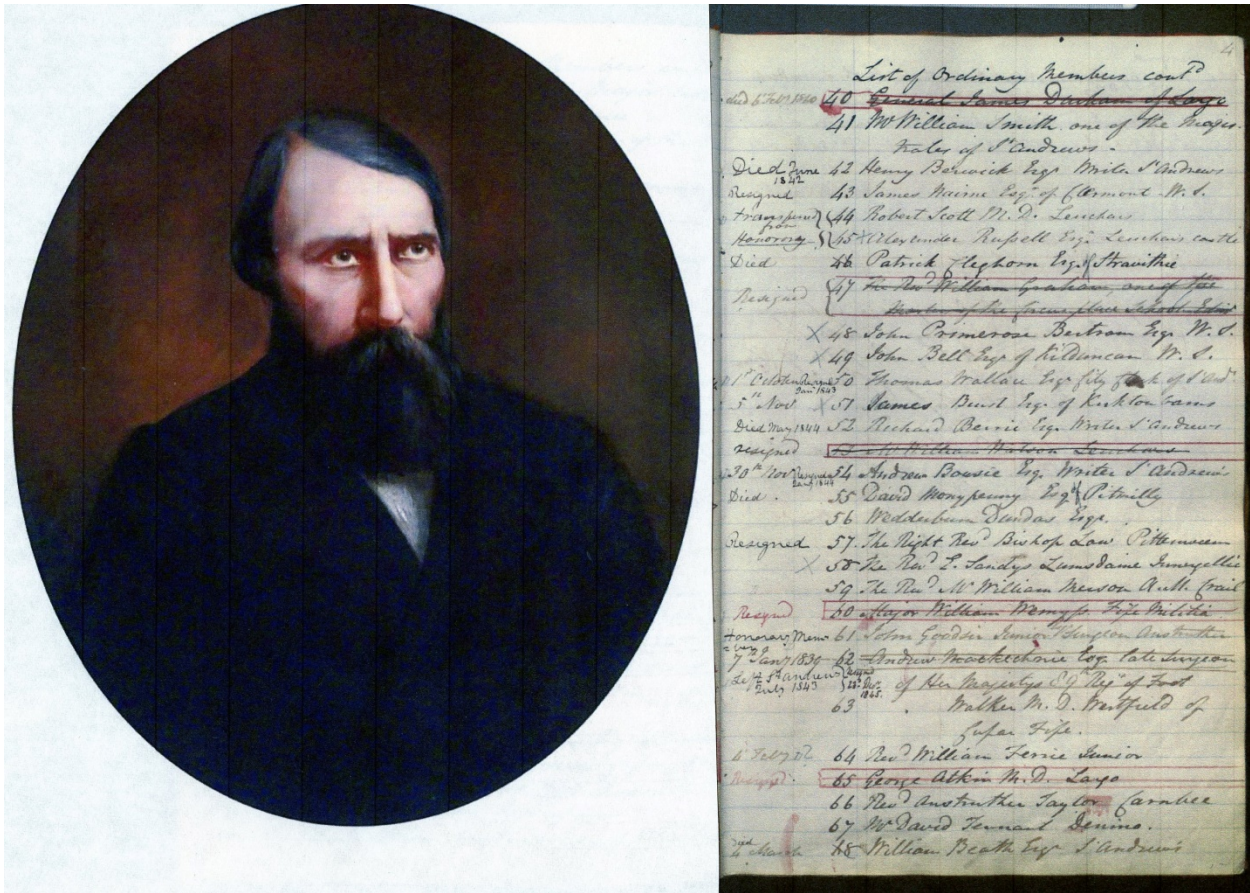 4
List of Ordinary Members cont'd
died 6 Feby 1840 40 General James Durham of Largo
41 Mr William Smith one of the Magis-
trates of St Andrews -
Died June 1842 42 Henry Berwick Esqr Writer St Andrews
Resigned 43 James Nairne Esqr of Claremont W. S.
transferred from 44 Robert Scott M. D. Leuchars
Honorary 45 Alexander Russell Esqr Leuchars castle
Died 46 Patrick Cleghorn Esqr of Stravithie
Resigned 47 The Revd William Graham, one of the
Masters of the School
48 John Primerose Bertram Esqr W. S.
49 John Bell Esqr of Kilduncan W. S.
1st October Resigned Jany 1843 50 Thomas Wallace Esqr City Clerk of St And
5th Nov 51 James Esqr of
Died May 1844 52 Richard Berrie Esqr Writer St Andrews
resigned 53 Mr William Wilson Leuchars
30th Nov Resigned Jany 1844 54 Andrew Bousie Esqr Writer St Andrews
Died. 55 David Monypenny Esqr of Pitmilly
56 Wedderburn Dundas Esqr.
Resigned 57. The Right Revd Bishop Low Pittenweem
58 The Revd E. Sandys Lumsdaine Innergellie
59 The Revd Mr William Merson A.M. Crail
Resigned 60 Major William Wemyss Fife Militia
Honorary Mem 61 John Goodsir Junior Surgeon Anstruther
7 Jany 1830 62 Andrew Mackechnie Esq late Surgeon
Left St Andrews July 1843 of Her Majestys Regt of Foot
63 Walker M. D. Westfield of
Cupar Fife.
64 Revd William Ferrie Junior
Resigned 65 George Aitkin M. D. Largo
66 Revd Anstruther Taylor Carnbee
67 Mr David Tennant Denino.
Died 4 March 68 William Beath Esqr St Andrews